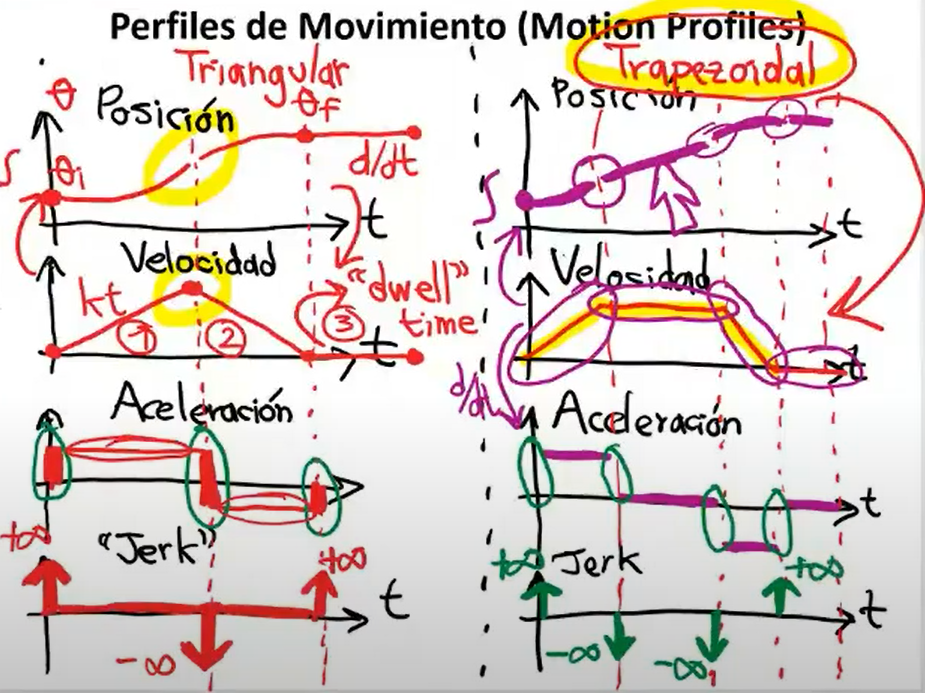 Perfiles de Movimiento (Motion Profiles)
Triangular
θ
Posición
θf
θi
∫
d/dt
t
Velocidad
kt
1
2
3
"dwell"
time
t
Aceleración
+∞
"Jerk"
+∞
t
-∞
Trapezoidal
Posición
∫
t
Velosidad
t
d/dt
Aceleración
t
+∞
Jerk
+∞
t
-∞
-∞